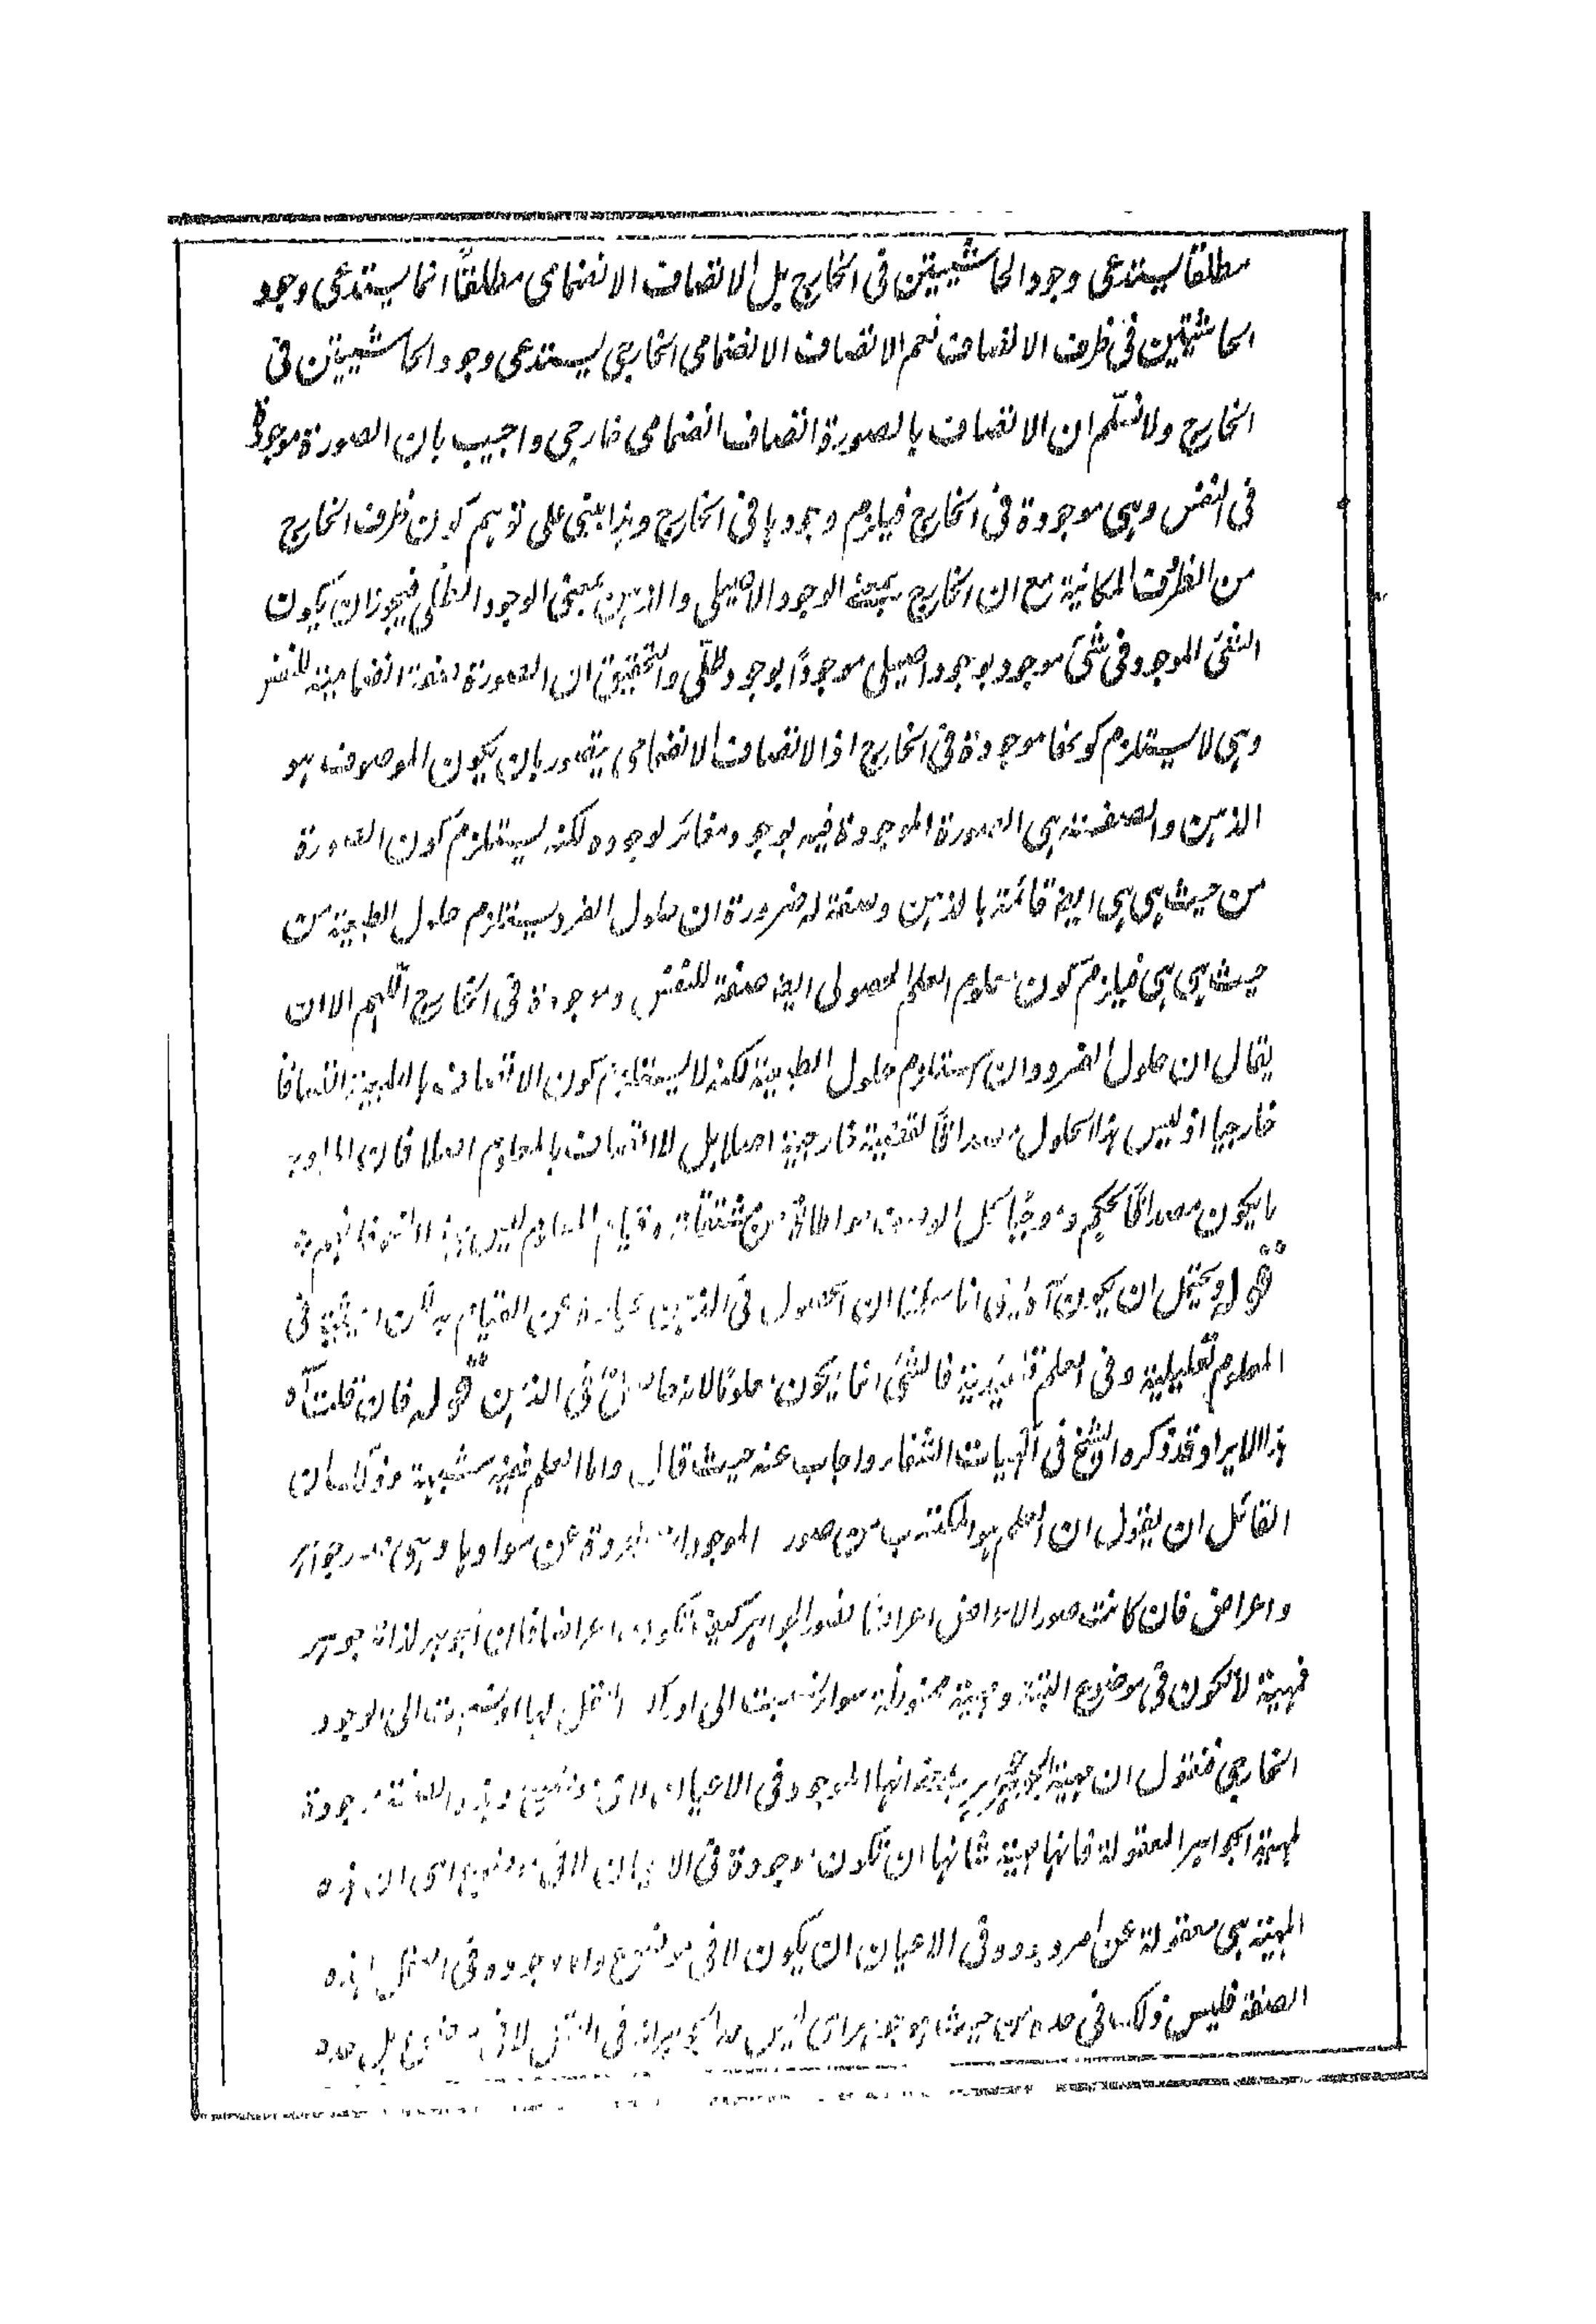 مطلقا يستدعي وجود الحاشيتين في الخارج بل الاتصاف الانضمامي مطلقاً انما يستدعي وجود
الحاشيتين في ظرف الاتصاف نعم الاتصاف الانضمامي الخارجي يستدعي وجود الحاشيتين في
الخارج ولا نسلّم ان الاتصاف بالصورة اتصاف انضمامي خارجي واجيب بان الصورة موجودة
في النفس وهي موجودة في الخارج فيلزم وجودها في الخارج وهذا يبتني على توهم كون ظرف الخارج
من الظروف المكانية مع ان الخارج بمعنى الوجود الاصيلي والذهن بمعنى الوجود الظلي فيجوز ان يكون
الشئ الموجود في شئ موجود بوجود اصيلي موجوداً بوجود ظلّي والتحقيق ان الصورة صفة انضمامية للنفس
وهي لا يستلزم كونها موجودة في الخارج اذ الاتصاف الانضمامي يتصور بان يكون الموصوف هو
الذهن والصفة هي الصورة الموجودة فيه بوجود مغائر لوجوده لكنه يستلزم كون الصورة
من حيث هي هي ايضا قائمة بالذهن وصفة له ضرورة ان حلول الفرد يستلزم حلول الطبيعة من
حيث هي هي فيلزم كون معلوم العلم الحصولي ايضا صفة للنفس وموجودة في الخارج اللّهم الا ان
يقال ان حلول الفرد وان استلزم حلول الطبيعة لكنه لا يستلزم كون الاتصاف بالطبيعة اتصافا
خارجيا اذ ليس هذا الحلول مصداقاً لقضية خارجية اصلا بل لا اتصاف بالمعلوم اصلا فان
ما يكون مصداقاً لحكم و
قوله ويحتمل ان يكون آه يعني انا سلمنا ان الحصول في الذهن عبارة عن القيام به لكن الحيثية في
المعلوم تعليلية وفي العلم تقييدية فالشئ انما يكون معلوما لانه حاصل في الذهن قوله فان قلت آه
هذا الايراد قد ذكره الشيخ في الهيات الشفاء واجاب عنه حيث قال واما العلم ففيه شبهة وذلك ان
القائل ان يقول ان العلم هو المكتسب من صور الموجودات مجردة عن موادها وهي صور جواهر
واعراض فان كانت صور الاعراض اعراضا فصور الجواهر كيف تكون اعراضا فان الجوهر لذاته جوهر
فمهية لا تكون في موضوع البتة ومهيته محفوظة سواء نسبت الى ادراك العقل لها او نسبت الى الوجود
الخارجي فنقول ان مهية الجوهر جوهر بمعنى انها الموجود في الاعيان لا في موضوع وهذه الصفة موجودة
لمهية الجواهر المعقولة فانها مهية شانها ان تكون موجودة في الاعيان لا في موضوع اي ان هذه
المهية هي معقولة عن امر وجوده في الاعيان ان يكون لا في موضوع واما وجوده في العقل بهذه
الصفة فليس ذلك في حده من حيث هو جوهر اي ليس حد الجوهر انه في العقل لا في موضوع بل حده